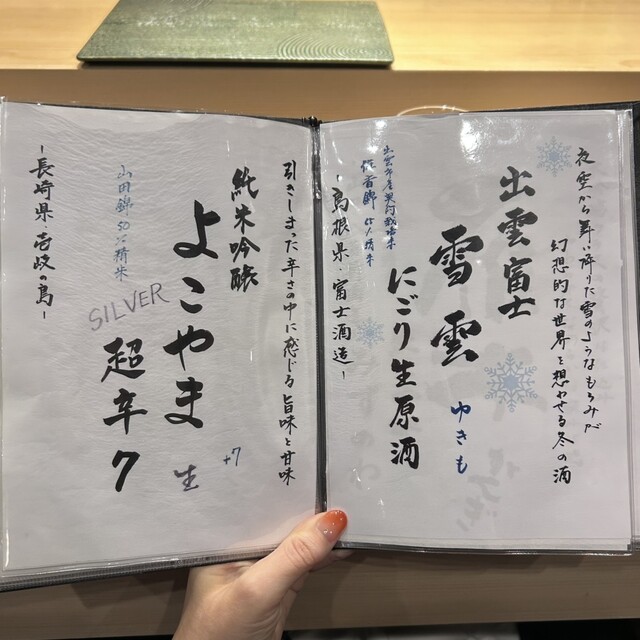 夜空から舞い降りた雪のようなもろみが
幻想的な世界を想わせる冬の酒
出雲富士
雪雲
ゆきも
にごり生原酒
佐香錦 65%精米
-島根県・富士酒造-
引きしまった辛さの中に感じる旨味と甘味
純米吟醸
よこやま
SILVER
超辛7
生
+7
山田錦50%精米
-長崎県 壱岐の島-